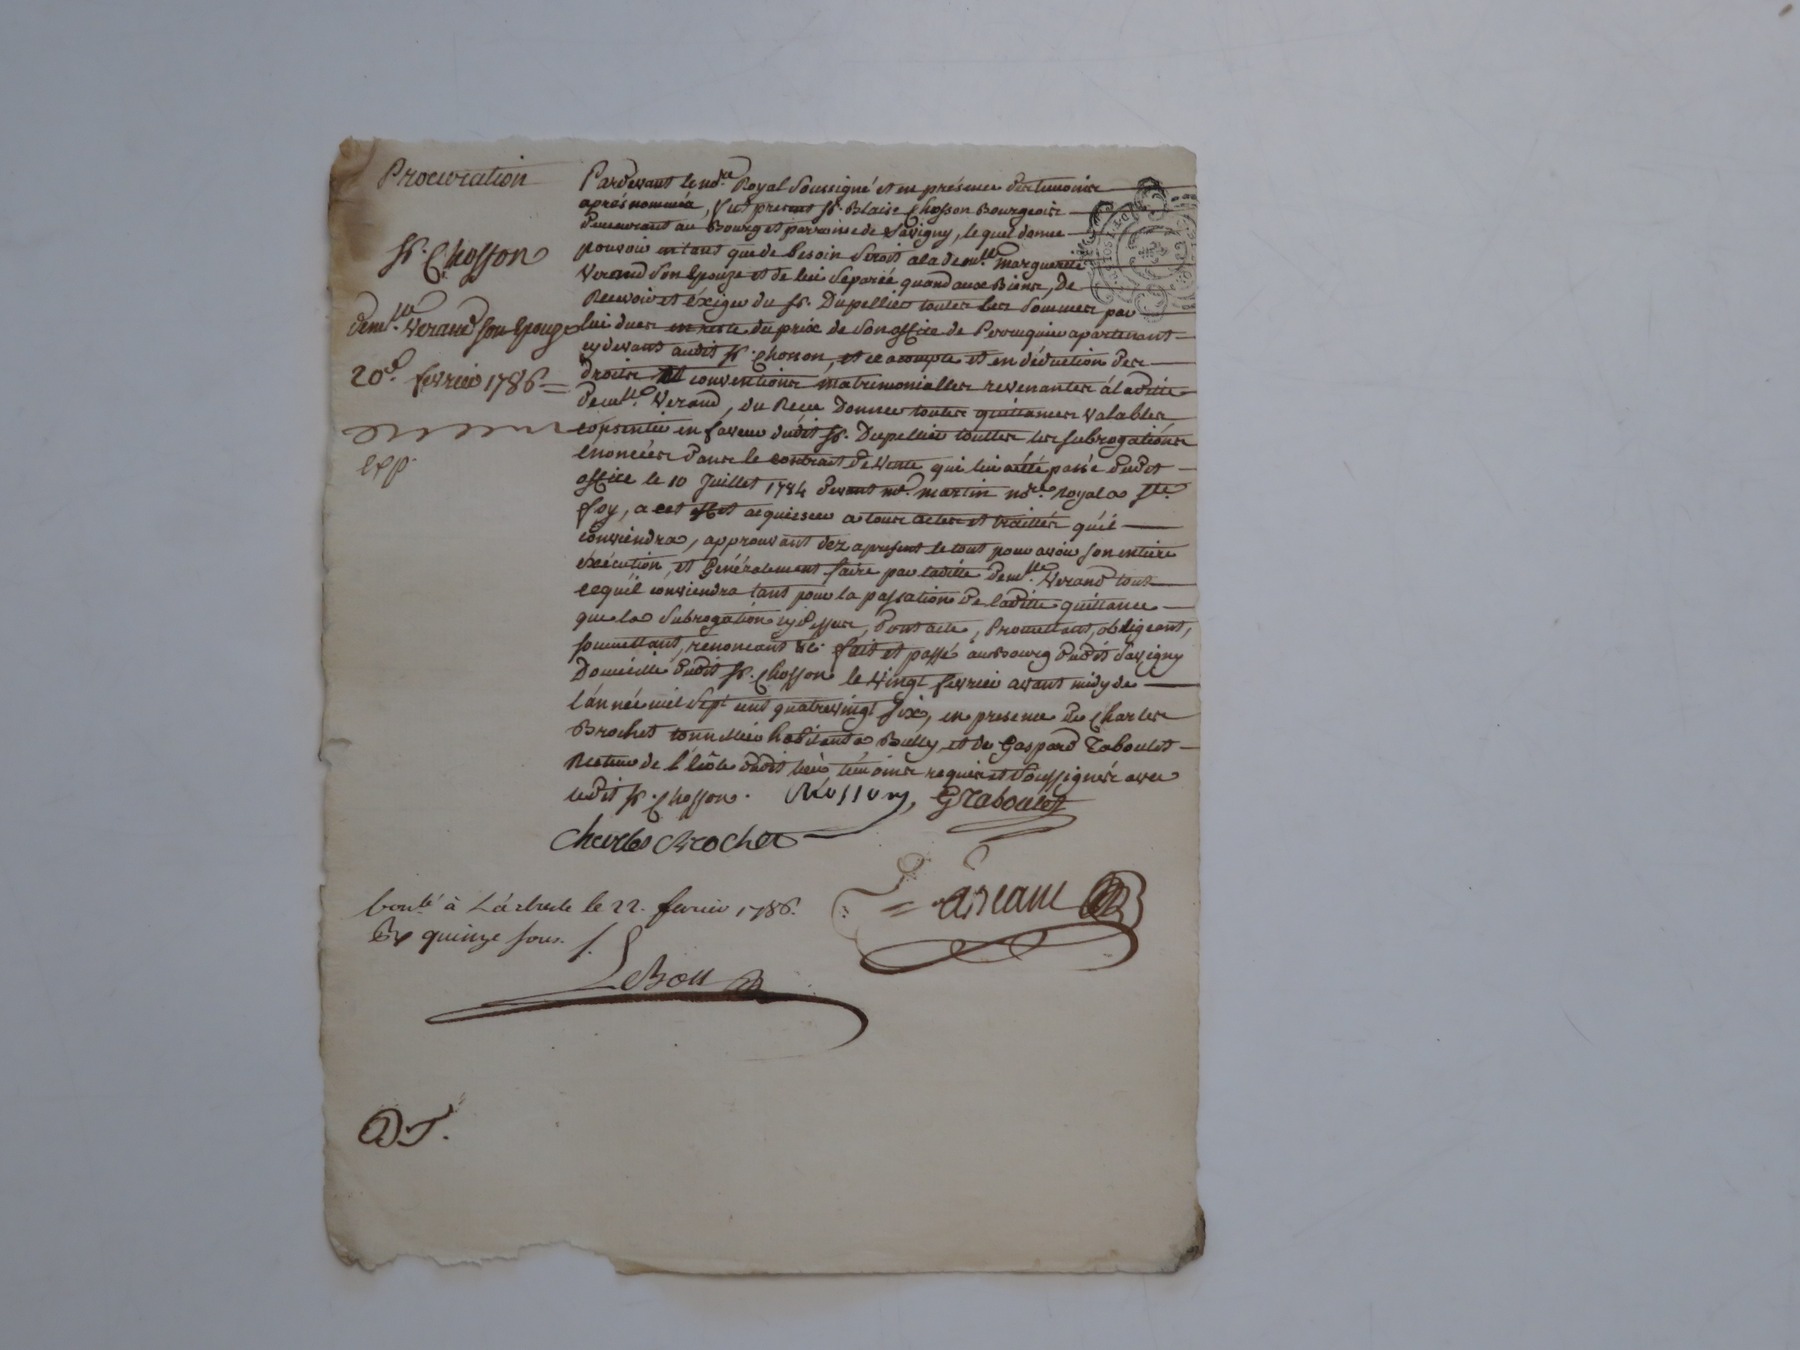 Procuration
Sr. Chosson
demlle Verand son Epouze
20e. fevrier 1786
Exp.
Pardevant le nore Royal soussigné et en présence des temoins
aprés nommés, fut present Sr. Blaise Chosson Bourgeois
demeurant au Bourg et parroisse de Savigny, lequel donne
pouvoir en tant que de besoin seroit a la demlle marguerite
Verand son Epouze et de lui separée quand aux Biens, de
Recevoir et éxiger du Sr. Dupellier toutes les sommes par
lui dues en reste du prix de son office de Perruquier apartenant
cy devant audit Sr. Chosson, et ce acompte et en déduction des
droits et conventions matrimonialles revenantes á laditte
demlle. Verand, du Recu Donner toutes quittances valables
consentir en faveur dudit Sr. Dupellier touttes les subrogations
énoncées dans le contrat de Vente qui lui a été passé dudit
office le 10 Juillet 1784 devant me. martin nore. royal a Ste.
foy, a cet effet acquiescer a tous actes et traittés qu'il
conviendra, approuvant dez apresent le tout pour avoir son entiere
éxécution, et Généralement faire par laditte demlle. Verand tout
ce qu'il conviendra tant pour la passation de laditte quittance
que la subrogation cy dessus, Dont acte, Promettant, obligeant,
soumettant, renoncant &c. fait et passé au Bourg dudit Savigny
Domicille dudit Sr. Chosson le vingt fevrier avant midy de
l'année mil sept cent quatrevingt six, en presence de Charles
Brochet tonnellier habitant a Bully, et de Gaspard Taboulet
Recteur de l'école dudit lieu, témoins requis et soussignés avec
ledit Sr. Chosson. Chosson, GTaboulet
Charles Brochet
Contlé à L'arbresle le 22. fevrier 1786.
Rx quinze sous.
LeBon